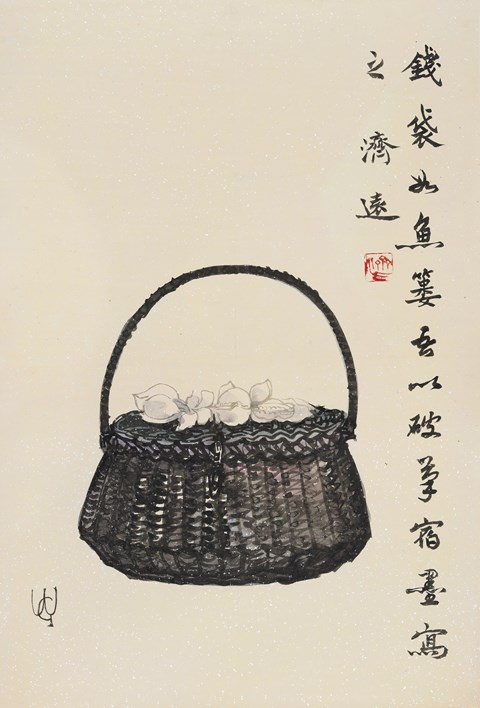 錢袋如魚簍吾以破筆宿墨寫
之 濟遠